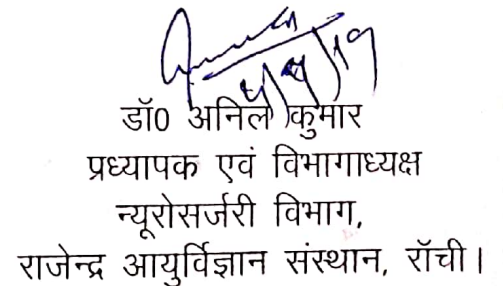 4/4/19
डॉ0 अनिल कुमार
प्रध्यापक एवं विभागाध्यक्ष
न्यूरोसर्जरी विभाग,
राजेन्द्र आयुर्विज्ञान संस्थान, रॉची।